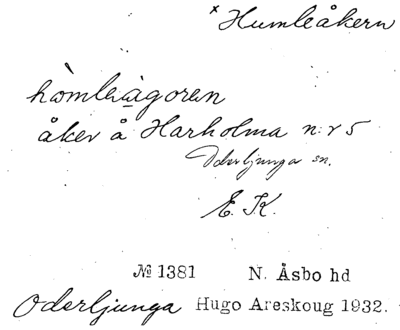 × Humleåkern
hòmleàgoren
åker å Harholma n:r 5
Oderljunga sn.
E. K.
№ 1381 N. Åsbo hd
Oderljunga Hugo Areskoug 1932.